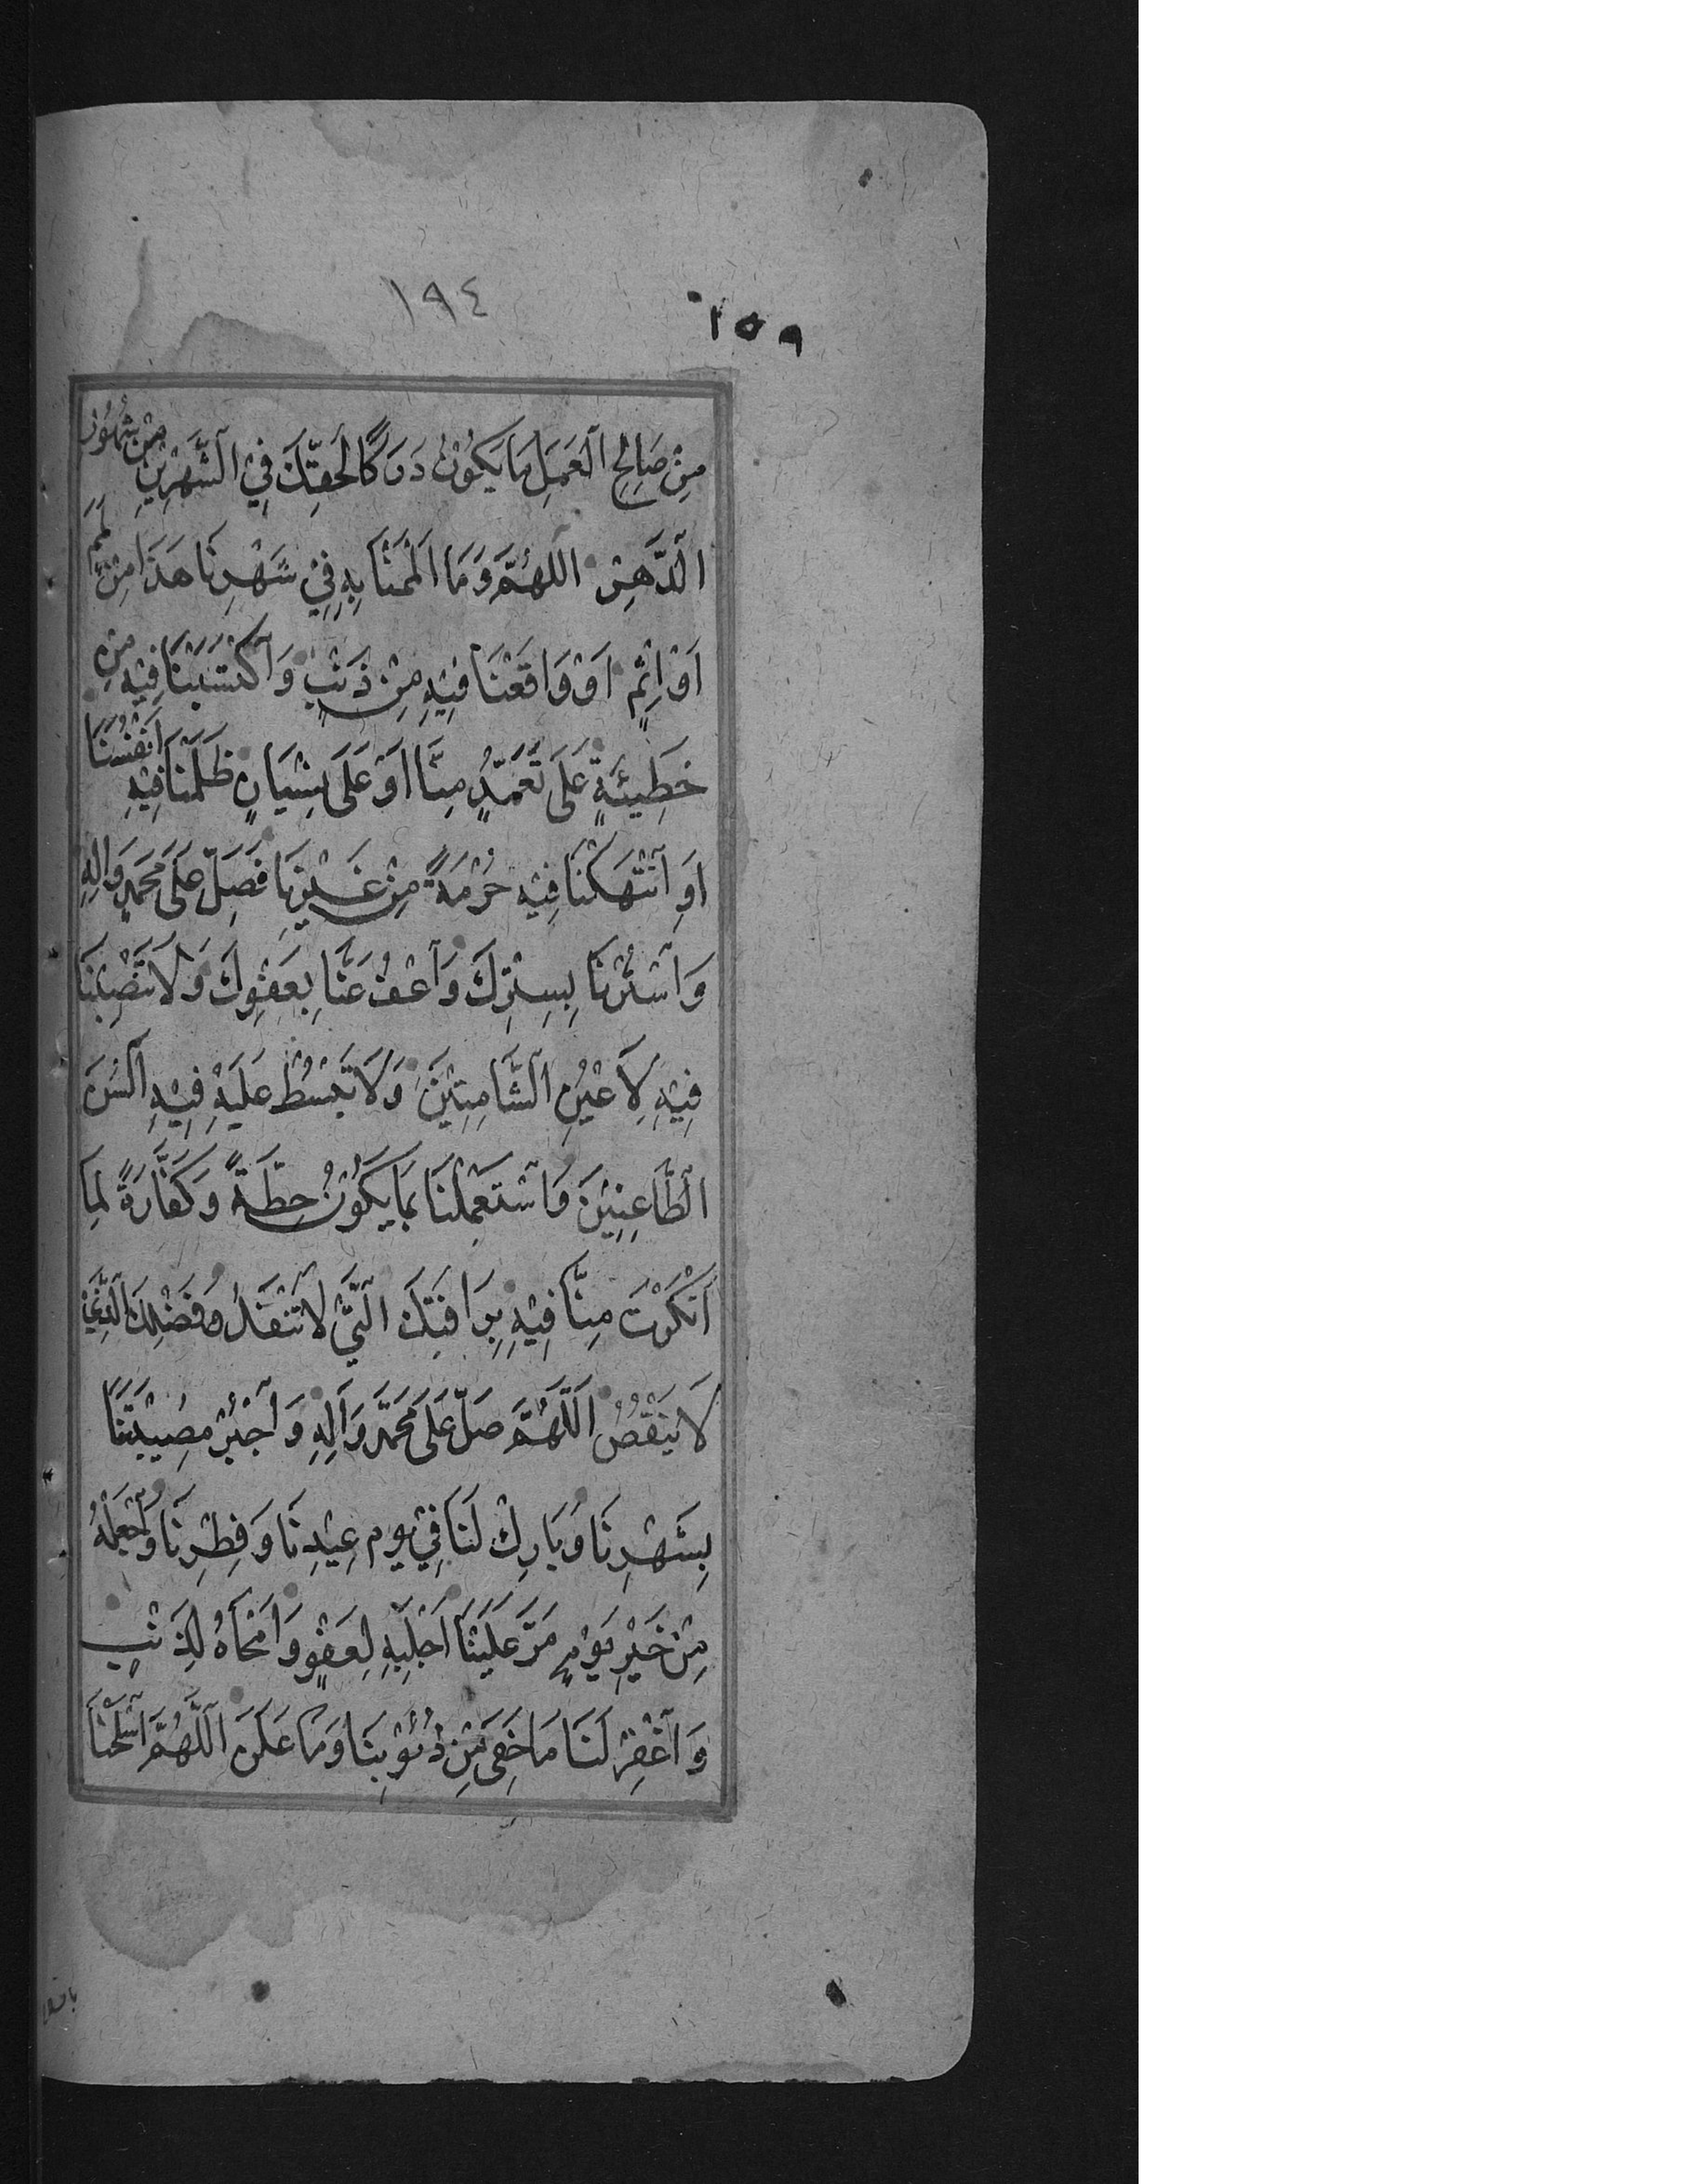 ١٩٤
١٥٩
مِنْ صَالِحِ الْعَمَلِ مَا يَكُوْنُ دَرَكًا لِحَقِّكَ فِي الشَّهْرَيْنِ مِنْ شُهُوْرِ
الدَّهْرِ اللهُمَّ وَمَا اَلْمَمْنَا بِهِ فِيْ شَهْرِنَا هٰذَا مِنْ لَمَمٍ
اَوْ اِثْمٍ اَوْ وَاقَعْنَا فِيْهِ مِنْ ذَنْبٍ وَاكْتَسَبْنَا فِيْهِ مِنْ
خَطِيْئَةٍ عَلَى تَعَمُّدٍ مِنَّا اَوْ عَلَى نِسْيَانٍ ظَلَمْنَا فِيْهِ اَنْفُسَنَا
اَوِ انْتَهَكْنَا فِيْهِ حُرْمَةً مِنْ غَيْرِنَا فَصَلِّ عَلَى مُحَمَّدٍ وَاٰلِهِ
وَاسْتُرْنَا بِسِتْرِكَ وَاعْفُ عَنَّا بِعَفْوِكَ وَلَا تَنْصِبْنَا
فِيْهِ لِاَعْيُنِ الشَّامِتِيْنَ وَلَا تَبْسُطْ عَلَيْهِ فِيْهِ اَلْسُنَ
الطَّاعِنِيْنَ وَاسْتَعْمِلْنَا بِمَا يَكُوْنُ حِطَّةً وَكَفَّارَةً لِمَا
اَنْكَرْتَ مِنَّا فِيْهِ بِرَافَتِكَ الَّتِيْ لَا تَنْفَدُ وَفَضْلِكَ الَّذِيْ
لَا يَنْقُصُ اَللّٰهُمَّ صَلِّ عَلَى مُحَمَّدٍ وَاٰلِهِ وَاجْبُرْ مُصِيْبَتَنَا
بِشَهْرِنَا وَبَارِكْ لَنَا فِيْ يَوْمِ عِيْدِنَا وَفِطْرِنَا وَاجْعَلْهُ
مِنْ خَيْرِ يَوْمٍ مَرَّ عَلَيْنَا اَجْلَبِهِ لِعَفْوٍ وَاَمْحَاهُ لِذَنْبٍ
وَاغْفِرْ لَنَا مَا خَفِيَ مِنْ ذُنُوْبِنَا وَمَا عَلَنَ اَللّٰهُمَّ اسْلَخْنَا